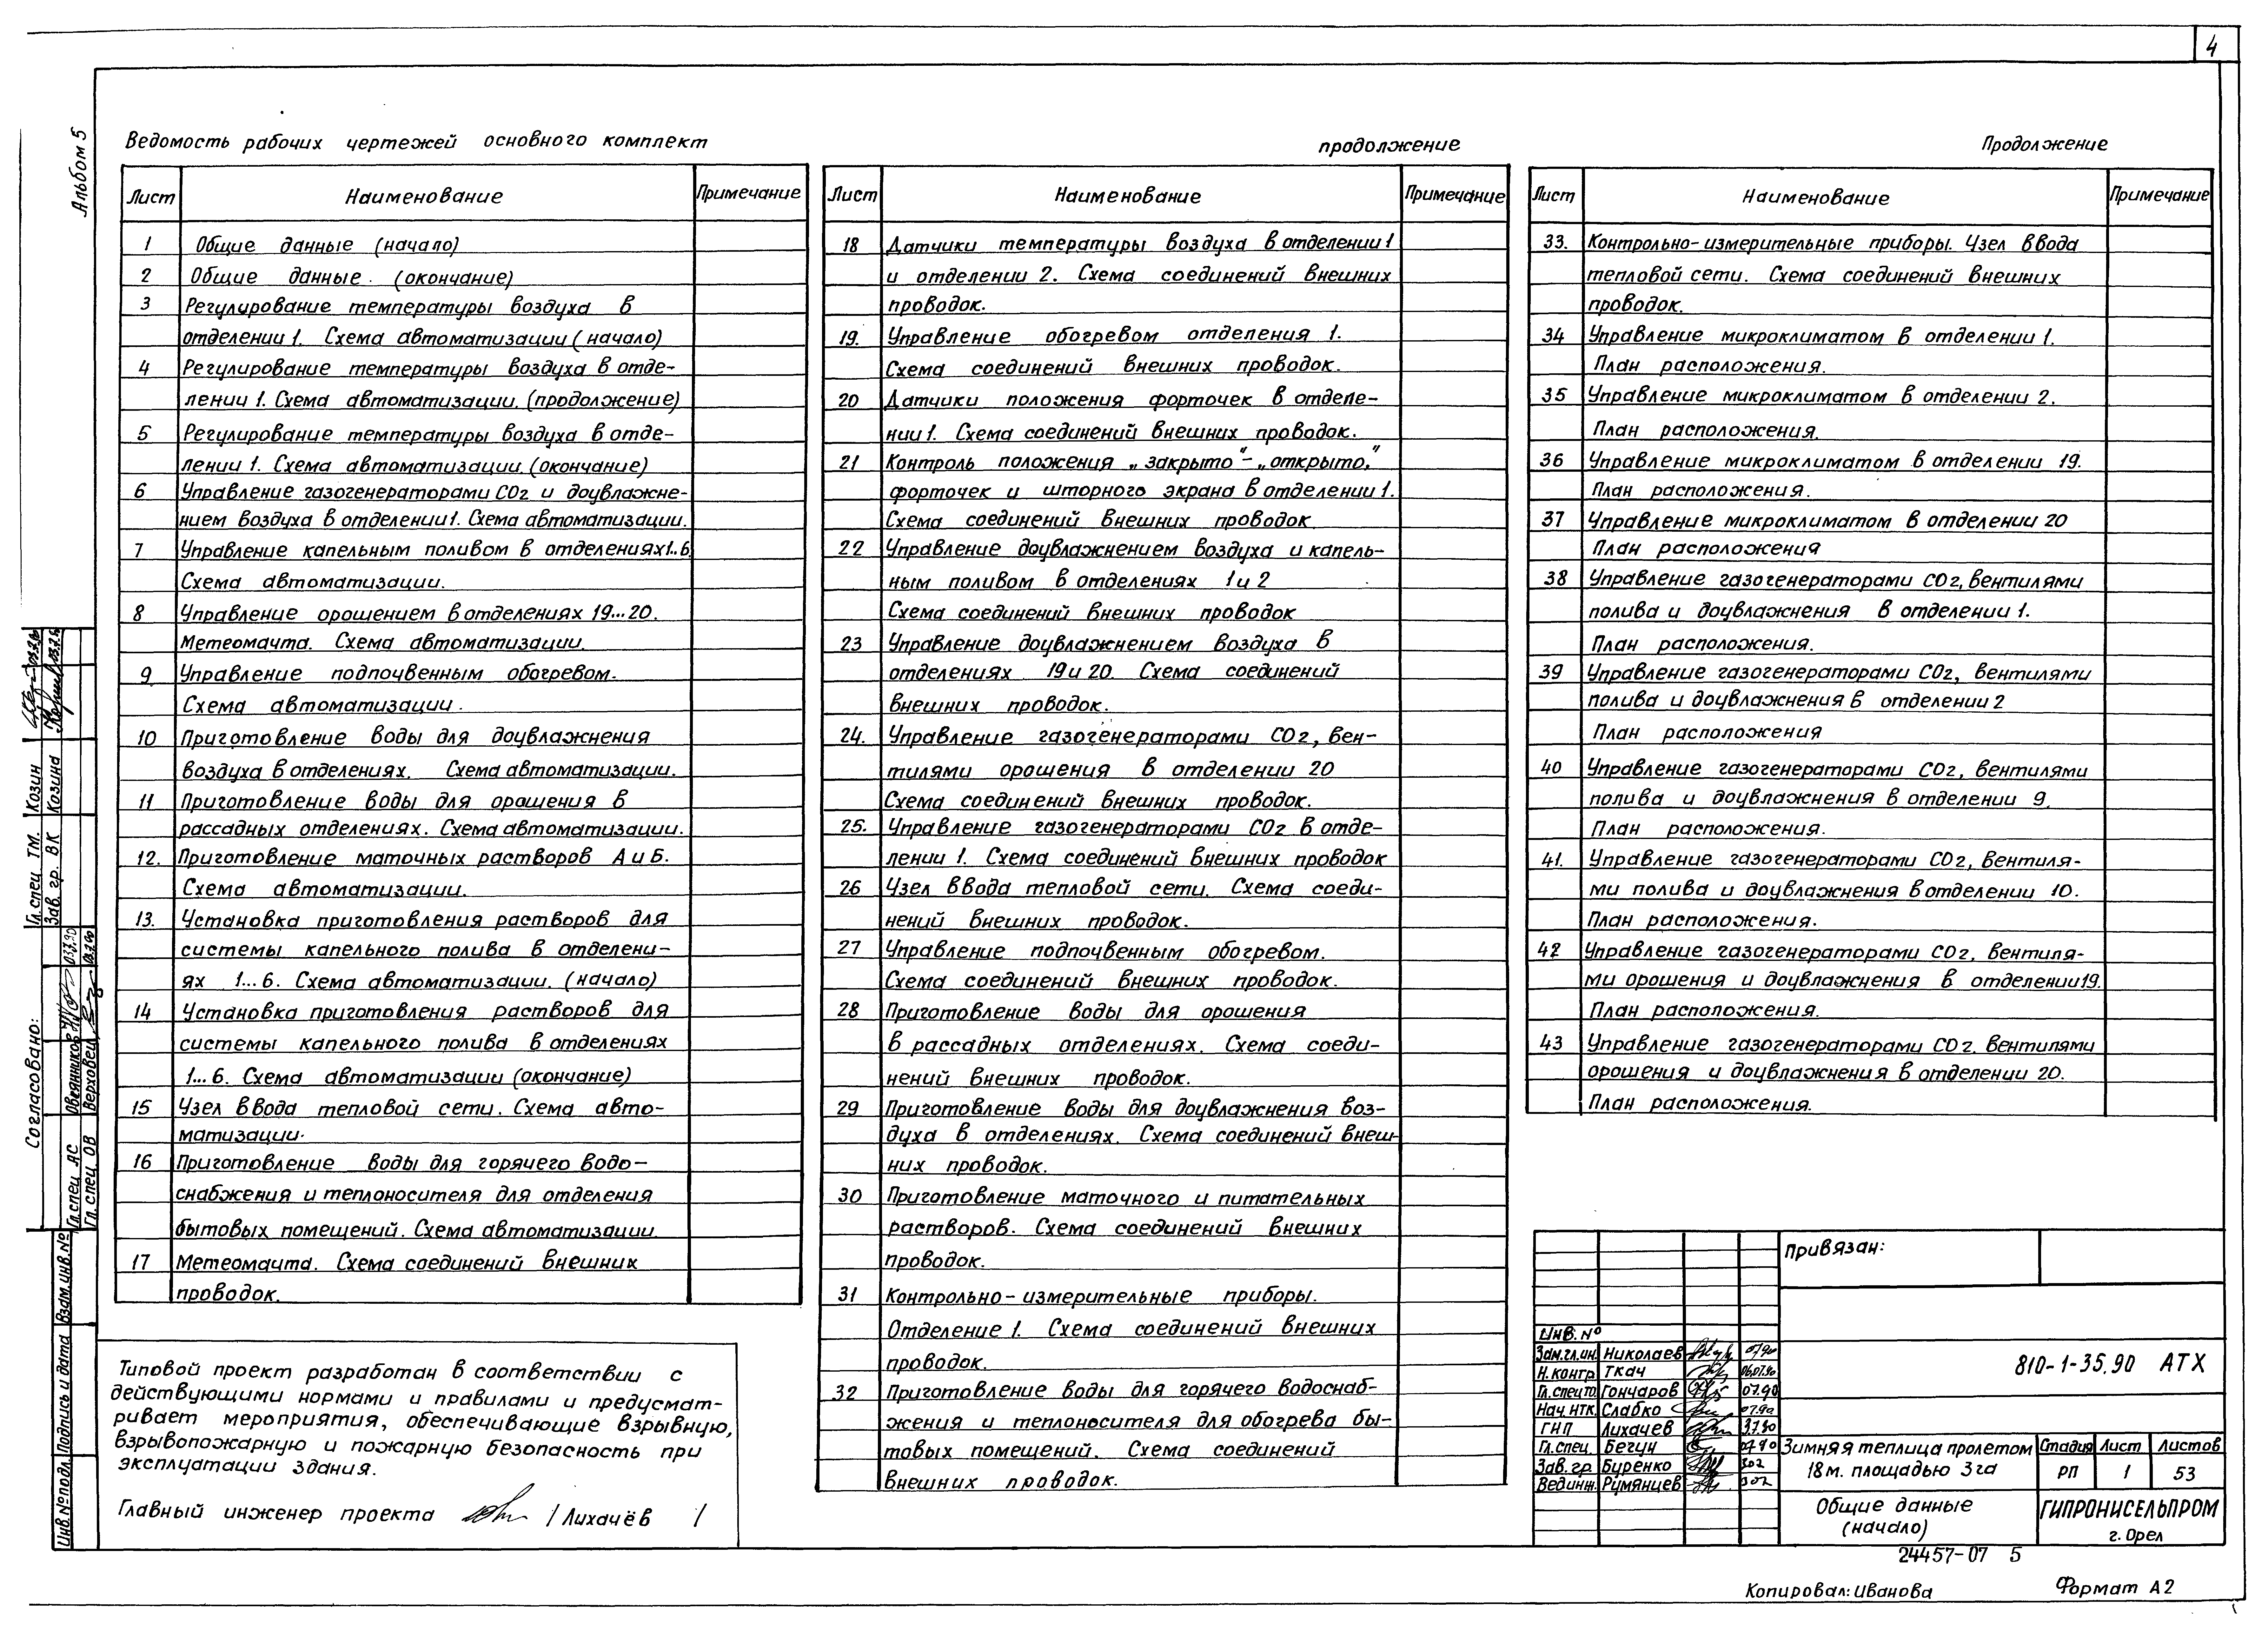 4
Альбом 5
Ведомость рабочих чертежей основного комплект
Лист Наименование Примечание
1 Общие данные (начало)
2 Общие данные. (окончание)
3 Регулирование температуры воздуха в
отделении 1. Схема автоматизации (начало)
4 Регулирование температуры воздуха в отде-
лении 1. Схема автоматизации. (продолжение)
5 Регулирование температуры воздуха в отде-
лении 1. Схема автоматизации. (окончание)
6 Управление газогенераторами СО2 и доувлажне-
нием воздуха в отделении 1. Схема автоматизации.
7 Управление капельным поливом в отделениях 1..6.
Схема автоматизации.
8 Управление орошением в отделениях 19...20.
Метеомачта. Схема автоматизации.
9 Управление подпочвенным обогревом.
Схема автоматизации.
10 Приготовление воды для доувлажнения
воздуха в отделениях. Схема автоматизации.
11 Приготовление воды для орошения в
рассадных отделениях. Схема автоматизации.
12. Приготовление маточных растворов А и Б.
Схема автоматизации.
13. Установка приготовления растворов для
системы капельного полива в отделени-
ях 1...6. Схема автоматизации. (начало)
14 Установка приготовления растворов для
системы капельного полива в отделениях
1...6. Схема автоматизации (окончание)
15 Узел ввода тепловой сети. Схема авто-
матизации.
16 Приготовление воды для горячего водо-
снабжения и теплоносителя для отделения
бытовых помещений. Схема автоматизации.
17 Метеомачта. Схема соединений внешних
проводок.
Типовой проект разработан в соответствии с
действующими нормами и правилами и предусмат-
ривает мероприятия, обеспечивающие взрывную,
взрывопожарную и пожарную безопасность при
эксплуатации здания.
Главный инженер проекта / Лихачёв /
продолжение
Лист Наименование Примечание
18 Датчики температуры воздуха в отделении 1
и отделении 2. Схема соединений внешних
проводок.
19. Управление обогревом отделения 1.
Схема соединений внешних проводок.
20 Датчики положения форточек в отделе-
нии 1. Схема соединений внешних проводок.
21 Контроль положения „закрыто"-„открыто,"
форточек и шторного экрана в отделении 1.
Схема соединений внешних проводок
22 Управление доувлажнением воздуха и капель-
ным поливом в отделениях 1 и 2
Схема соединений внешних проводок
23 Управление доувлажнением воздуха в
отделениях 19 и 20. Схема соединений
внешних проводок.
24. Управление газогенераторами СО2, вен-
тилями орошения в отделении 20
Схема соединений внешних проводок.
25. Управление газогенераторами СО2 в отде-
лении 1. Схема соединений внешних проводок
26 Узел ввода тепловой сети. Схема соеди-
нений внешних проводок.
27 Управление подпочвенным обогревом.
Схема соединений внешних проводок.
28 Приготовление воды для орошения
в рассадных отделениях. Схема соеди-
нений внешних проводок.
29 Приготовление воды для доувлажнения воз-
духа в отделениях. Схема соединений внеш-
них проводок.
30 Приготовление маточного и питательных
растворов. Схема соединений внешних
проводок.
31 Контрольно-измерительные приборы.
Отделение 1. Схема соединений внешних
проводок.
32 Приготовление воды для горячего водоснаб-
жения и теплоносителя для обогрева бы-
товых помещений. Схема соединений
внешних проводок.
Продолжение
Лист Наименование Примечание
33. Контрольно-измерительные приборы. Узел ввода
тепловой сети. Схема соединений внешних
проводок.
34 Управление микроклиматом в отделении 1.
План расположения.
35 Управление микроклиматом в отделении 2.
План расположения.
36 Управление микроклиматом в отделении 19.
План расположения.
37 Управление микроклиматом в отделении 20
План расположения
38 Управление газогенераторами СО2, вентилями
полива и доувлажнения в отделении 1.
План расположения.
39 Управление газогенераторами СО2, вентилями
полива и доувлажнения в отделении 2
План расположения
40 Управление газогенераторами СО2, вентилями
полива и доувлажнения в отделении 9.
План расположения.
41. Управление газогенераторами СО2, вентиля-
ми полива и доувлажнения в отделении 10.
План расположения.
42 Управление газогенераторами СО2, вентиля-
ми орошения и доувлажнения в отделении 19.
План расположения.
43 Управление газогенераторами СО2. вентилями
орошения и доувлажнения в отделении 20.
План расположения.
Согласовано:
Гл. спец ТМ. Козин
Зав. гр. ВК Козина
Гл. спец АС Овчянников 03.7.90
Гл. спец ОВ Верховец
Инв.№подл. Подпись и дата Взам.инв.№
Привязан:
Инв.№
Зам.гл.ин. Николаев 07.90
Н.контр. Ткач 06.07.90
Гл.спец ТО Гончаров 07.90
Нач. НТК Слабко 07.90
ГНП Лихачев 3.7.90
Гл.спец. Бегун 07.90
Зав.гр. Буренко
Вед.инж. Румянцев
810-1-35.90 АТХ
Зимняя теплица пролетом
18 м. площадью 3 га
Стадия Лист Листов
РП 1 53
Общие данные
(начало)
ГИПРОНИСЕЛЬПРОМ
г. Орел
24457-07 5
Копировал: Иванова Формат А2